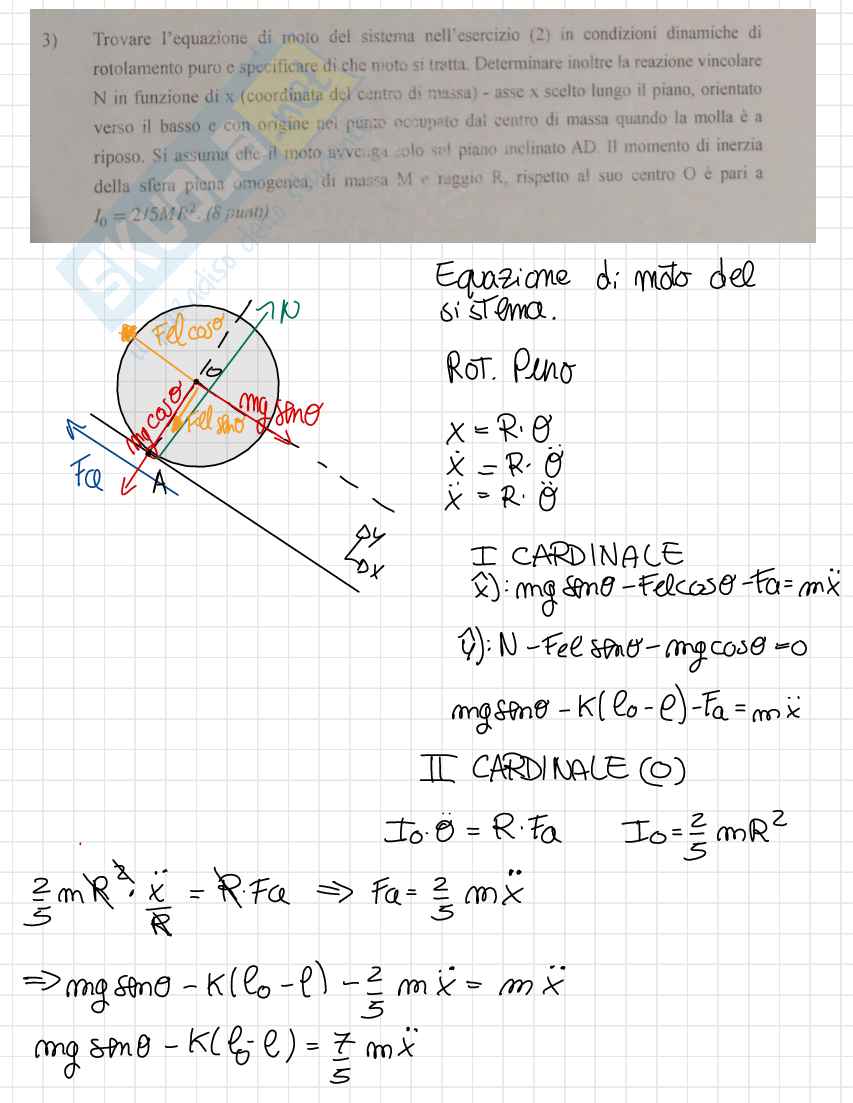 3) Trovare l'equazione di moto del sistema nell'esercizio (2) in condizioni dinamiche di
rotolamento puro e specificare di che moto si tratta. Determinare inoltre la reazione vincolare
N in funzione di x (coordinata del centro di massa) - asse x scelto lungo il piano, orientato
verso il basso e con origine nel punto occupato dal centro di massa quando la molla è a
riposo. Si assuma che il moto avvenga solo sul piano inclinato AD. Il momento di inerzia
della sfera piena omogenea, di massa M e raggio R, rispetto al suo centro O è pari a
I₀ = 2/5MR². (8 punti)
SKUOLA.net
Equazione di moto del
sistema.
Rot. Puro
x = R·θ
ẋ = R·θ̈
ẍ = R·θ̈
I CARDINALE
x̂): mg senθ - Fel cosθ - Fa = mẍ
ŷ): N - Fel senθ - mg cosθ = 0
mg senθ - K(l₀ - l) - Fa = mẍ
II CARDINALE (O)
I₀·θ̈ = R·Fa I₀ = 2/5 mR²
2/5 mR²·ẍ/R = R·Fa ⇒ Fa = 2/5 mẍ
⇒ mg senθ - K(l₀ - l) - 2/5 mẍ = mẍ
mg senθ - K(l₀ - l) = 7/5 mẍ
Fel cosθ
N
O
mg cosθ
Fel senθ
mg senθ
Fa
A
y
x